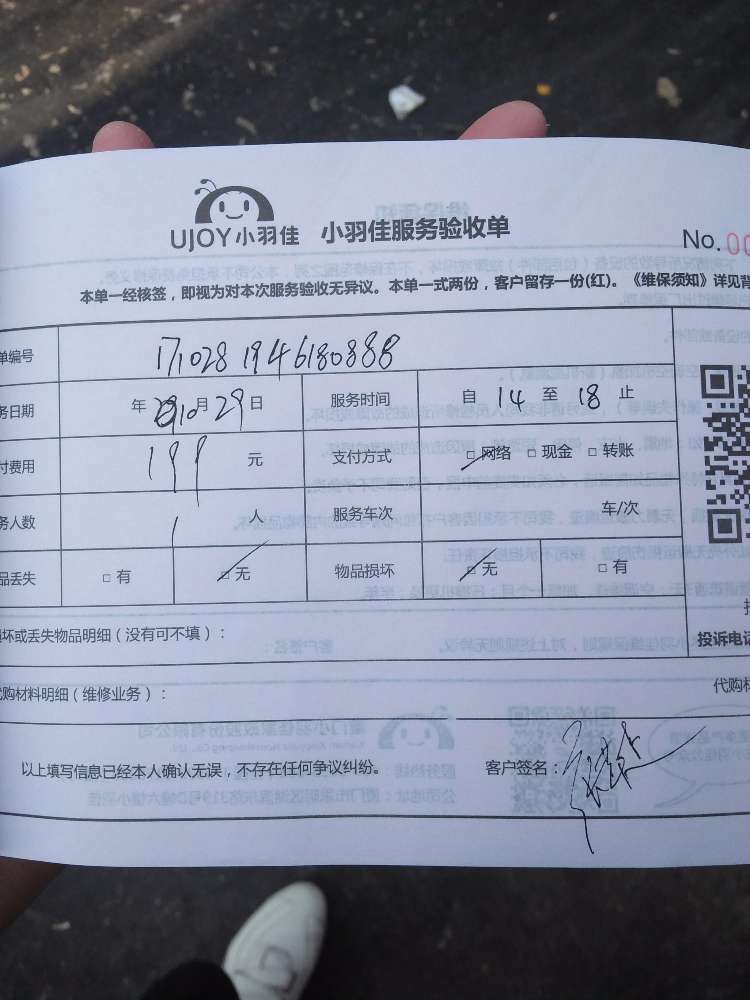 UJOY小羽佳 小羽佳服务验收单
No. 00
本单一经核签，即视为对本次服务验收无异议。本单一式两份，客户留存一份(红)。《维保须知》详见背
单编号 1710281946180888
务日期 年 10月29日 服务时间 自 14 至 18 止
付费用 199 元 支付方式 □网络 □现金 □转账
务人数 1 人 服务车次 车/次
品丢失 □有 □无 物品损坏 □无 □有
损坏或丢失物品明细（没有可不填）：
投诉电话
代购材料明细（维修业务）：
代购材
以上填写信息已经本人确认无误，不存在任何争议纠纷。 客户签名：